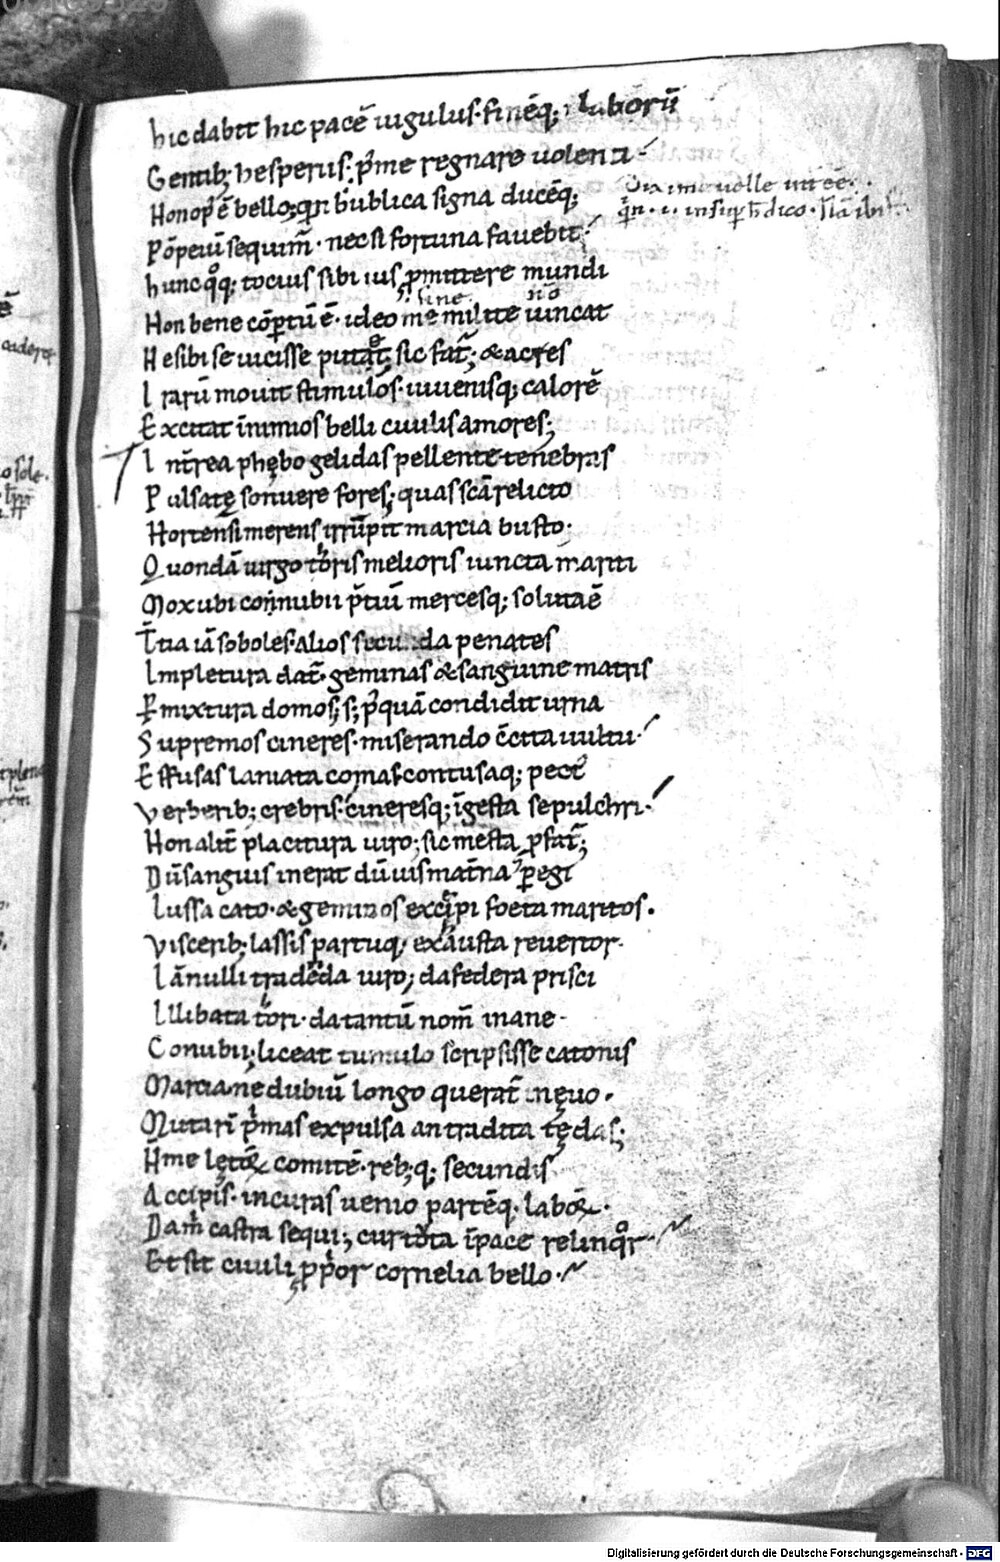 hic dabit hic pacē iugulus· finēq; laborū
Gentib; hesperus; p̄me regnare uolenti·
Non op̄ ē bello; qn̄ publica signa ducēq;
Pōpeiū sequim̄· nec si fortuna fauebit·
hunc qͦq; tocius sibi ius ꝓmittere mundi
Non bene cōptū ē· ideo me milite uincat
sine nō
Ne sibi se uicisse putat̄; sic fat̄; & acres
Irarū mouit stimulos· iuuenisq; calorē
Excitat in nimios belli ciuilis amores;
Int̄rea phębo gelidas pellente tenebras
Pulsatę sonuere fores; quas scā relicto
Hortensi merens irrūpit marcia busto·
Quondā uirgo toris melioris iuncta mariti
Mox ubi connubii p̄tiū mercesq; soluta ē
T̄tia iā soboles· Alios secu da penates
Impletura dat̄· geminas & sanguine matris
Pmixtura domos; s; p̄quā condidit urna
Supremos cineres· miserando cc̄ita uultu·
Effusas laniata comas contusaq; pect᷒
Verberib; crebris· cineresq; īgesta sepulchri·
Non alit̄ placitura uiro; sic mesta ꝓfat̄;
Dū sanguis inerat dū uis mat̄na peregi
Iussa cato· & geminos excepi foeta maritos.
Viscerib; lassis partuq; exausta reuertor·
Iā nulli tradēda uiro; da federa prisci
Illibata tori· da tantū nom̄ inane·
Conubii; liceat tumulo scripsisse catonis
Marcia ne dubiū longo querat̄ in ęuo·
Mutarī p̄mas expulsa an tradita tędas;
N̄ me lętoꝝ comitē· reb;q; secundis
Accipis· in curas uenio partēq· laboꝝ·
Da m̄ castra sequi; cur tuta ī pace relinqͦr·
Et sit ciuili ꝓpior cornelia bello·